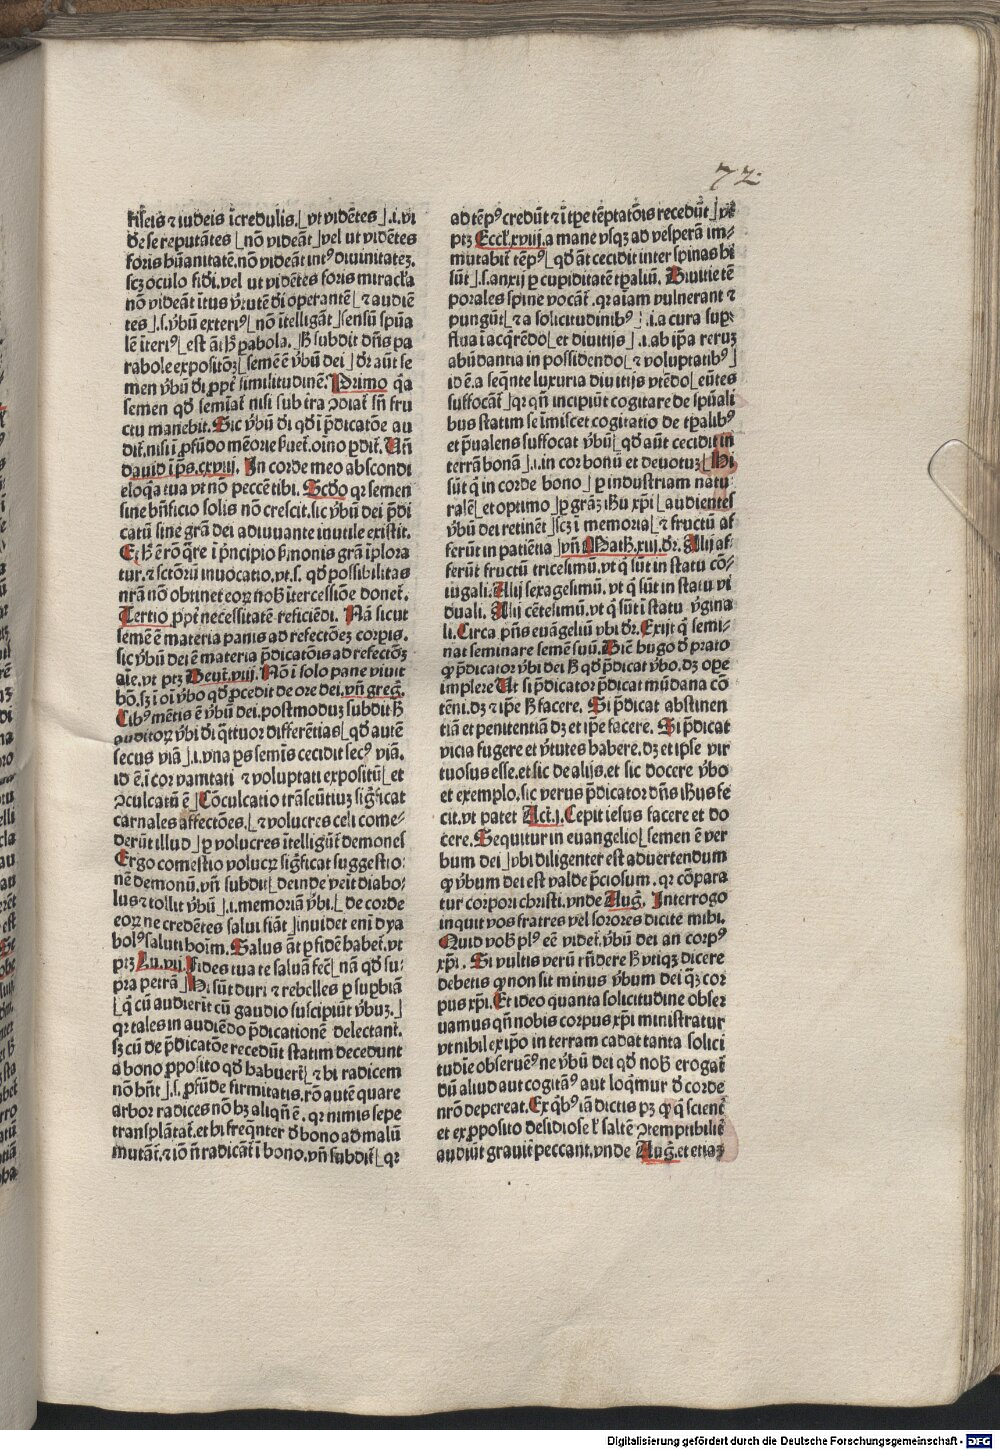 72.
riseis ⁊ iudeis īcredulis. ⌊vt vidētes⌋ .i. vi
de se reputātes ⌊nō videāt⌋ vel ut vidētes
foris hūanitatē. nō videāt int⁹ diuinitatez.
scz oculo fidi. vel ut vidētes foris miracła
nō videāt ītus v̄tutē di operantē ⌊⁊ audiē
tes⌋ .s. v̄bū exteri⁹ ⌊nō ītelligāt⌋ sensū spūa
lē īteri⁹ ⌊est āt hͦ pabola. hͦ subdit dn̄s pa
rabole expositōꝫ ⌊semē ē v̄bū dei⌋ dr̄ aūt se
men v̄bū di ꝓpt̄ similitudinē. Primo q̄a
semen qd̄ semīat̄ nisi sub tr̄a ꝯdiat̄ sn̄ fru
ctu manebit. Sic v̄bū di qd̄ ī p̄dicatōe au
dit̄. nisi ī ꝓfūdo mēorie ẜuet̄. oīno ꝑdit̄. Vn̄
dauid ī ps̄. cxviij. In corde meo abscondi
eloq̄a tua vt nō peccē tibi. Scd̄o qꝛ semen
sine bn̄ficio solis nō crescit. sic v̄bū dei p̄di
catū sine grā dei adiuuante inutile existit.
Et hͦ ē rō q̄re ī p̄ncipio ẜmonis grā īplora
tur. ⁊ sctōrū inuocatio. vt .s. qd̄ possibilitas
nrā nō obtinet eoꝝ nob̄ ītercessiōe donet̄.
Tertio ꝓpt̄ necessitatē reficiēdi. Nā sicut
semē ē materia panis ad refectōeꝫ corpis.
sic v̄bū dei ē materia p̄dicatōis ad refectōꝫ
aīe. vt ptꝫ Deut̄. viij. Nō ī solo pane viuit
hō. sꝫ ī oī v̄bo qd̄ ꝓcedit de ore dei. vn̄ greḡ.
Cib⁹ mētis ē v̄bū dei. postmoduꝫ subdit hͦ
auditoꝝ v̄bi di q̄ttuor differētias ⌊qd̄ autē
secus viā⌋ .i. vna ps semīs cecidit sec⁹ viā.
id ē. ī cor vanitati ⁊ voluptati expositū ⌊et
ꝯculcatū ē⌋ Cōculcatio trāseūtiuꝫ sig̃ficat
carnales affectōes. ⌊⁊ volucres celi come⸗
derūt illud⌋ ꝑ volucres ītelligūt̄ demones
Ergo comestio volucꝝ sig̃ficat suggestio⸗
nē demonū. vn̄ subdit ⌊deinde veīt diabo⸗
lus ⁊ tollit v̄bū⌋ .i. memoriā v̄bi. ⌊de corde
eoꝝ ne credētes salui fiāt⌋ inuidet enī dya
bol⁹ saluti hoīm. Salus āt ꝑ fidē habet̄. vt
ptꝫ Lu. vij. Fides tua te saluā fec̄ ⌊nā qd̄ su⸗
pra petrā⌋ Hi sūt duri ⁊ rebelles ꝑ supbiā
⌊q̄ cū audierīt cū gaudio suscipiūt v̄buꝫ.⌋
qꝛ tales in audiēdo p̄dicationē delectant̄.
sꝫ cū de p̄dicatōe recedūt statim decedunt
a bono ꝓposito qd̄ habuerīt ⌊⁊ hi radicem
nō hn̄t⌋ .s. ꝓfūde firmitatis. rō autē quare
arbor radices nō hꝫ aliqn̄ ē. qꝛ nimis sepe
transplātat̄. et hi freq̄nter d̄ bono ad malū
mutāt̄. ⁊ iō n̄ radicāt̄ ī bono. vn̄ subdit̄ ⌊qꝛ
ad tēp⁹ credūt ⁊ ī tp̄e tēptatōis recedūt⌋ vt
ptꝫ Eccl̄. xviij. a mane vsqꝫ ad vesperā im⸗
mutabit̄ tēp⁹ ⌊qd̄ āt cecidit inter spinas hi
sūt⌋ .s. anxij ꝑ cupiditatē tp̄aliū. Diuitie tē
porales spine vocāt̄. qꝛ aīam vulnerant ⁊
pungūt ⌊⁊ a solicitudinib⁹⌋ .i. a cura supꝛ
flua ī acq̄rēdo ⌊et diuitijs⌋ .i. ab ip̄a reruꝫ
abūdantia in possidendo ⌊⁊ voluptatib⁹⌋
id ē. a seq̄nte luxuria diuitijs vtēdo ⌊eūtes
suffocāt̄⌋ qꝛ qn̄ incipiūt cogitare de spūali
bus statim se īmiscet cogitatio de tp̄alib⁹
et p̄ualens suffocat v̄bū ⌊qd̄ aūt cecidit in
terrā bonā⌋ .i. in cor bonū et deuotuꝫ ⌊Hi
sūt q̄ in corde bono⌋ ꝑ industriam natu⸗
ralē ⌊et optimo⌋ ꝑ grāꝫ ih̄u xp̄i ⌊audientes
v̄bū dei retinēt⌋ scꝫ ī memoria ⌊⁊ fructū af
ferūt in patiētia⌋ vn̄ Math̄. xiij. dr̄. Alij af⸗
ferūt fructū tricesimū. vt q̄ sūt in statu cō⸗
iugali. Alij sexagesimū. vt q̄ sūt in statu vi
duali. Alij cētesimū. vt q̄ sūt ī statu v̄gina
li. Circa p̄ns euāgeliū vbi dr̄. Exijt q̄ semi⸗
nat seminare semē suū. Dīc hugo d̄ prato
ꝙ p̄dicator v̄bi dei hͦ qd̄ p̄dicat v̄bo. dꝫ ope
implere Vt si p̄dicator p̄dicat mūdana cō
tēni. dꝫ ⁊ ip̄e hͦ facere. Si p̄dicat abstinen
tiā et penitentiā dꝫ et ip̄e facere. Si p̄dicat
vicia fugere et v̄tutes habere. dꝫ et ipse vir
tuosus esse. et sic de alijs. et sic docere v̄bo
et exemplo. sic verus p̄dicator dn̄s ih̄us fe
cit. vt patet Act̄. j. Cepit iesus facere et do
cere. Sequitur in euangelio ⌊semen ē ver
bum dei⌋ vbi diligenter est aduertendum
ꝙ v̄bum dei est valde p̄ciosum. qꝛ cōpara
tur corpori christi. vnde Aug̃. Interrogo
inquit vos fratres vel sorores dicite mihi.
Quid vob̄ pl⁹ eē videt̄. v̄bū dei an corp⁹
xp̄i. Si vultis verū rn̄dere hͦ vtiqꝫ dicere
debetis ꝙ non sit minus v̄bum dei q̄ꝫ cor
pus xp̄i. Et ideo quanta solicitudine obser
uamus qn̄ nobis corpus xp̄i ministratur
vt nihil ex ip̄o in terram cadat tanta solici
tudīe obseruem⁹ ne v̄bū dei qd̄ nob̄ erogat̄
dū aliud aut cogitam⁹ aut loq̄mur d̄ corde
nrō depereat. Ex q̄b⁹ iā dictis pꝫ ꝙ q̄ sciēt̄
et ex ꝓposito desidiose ł saltē ꝯtemptibiliē
audiūt grauit̄ peccant. vnde Aug̃. et etiaꝫ
Digitalisierung gefördert durch die Deutsche Forschungsgemeinschaft - DFG